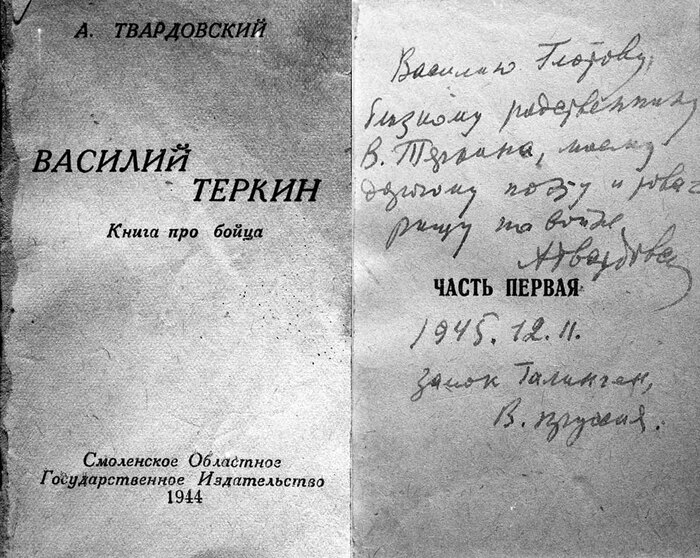 А. ТВАРДОВСКИЙ
ВАСИЛИЙ
ТЕРКИН
Книга про бойца
Смоленское Областное
Государственное Издательство
1944
Василию Глотову,
близкому родственнику
В. Теркина, моему
дорогому поэту и това-
рищу по войне
АТвардовский
ЧАСТЬ ПЕРВАЯ
1945. 12. II.
замок Талинген,
В. Пруссия.